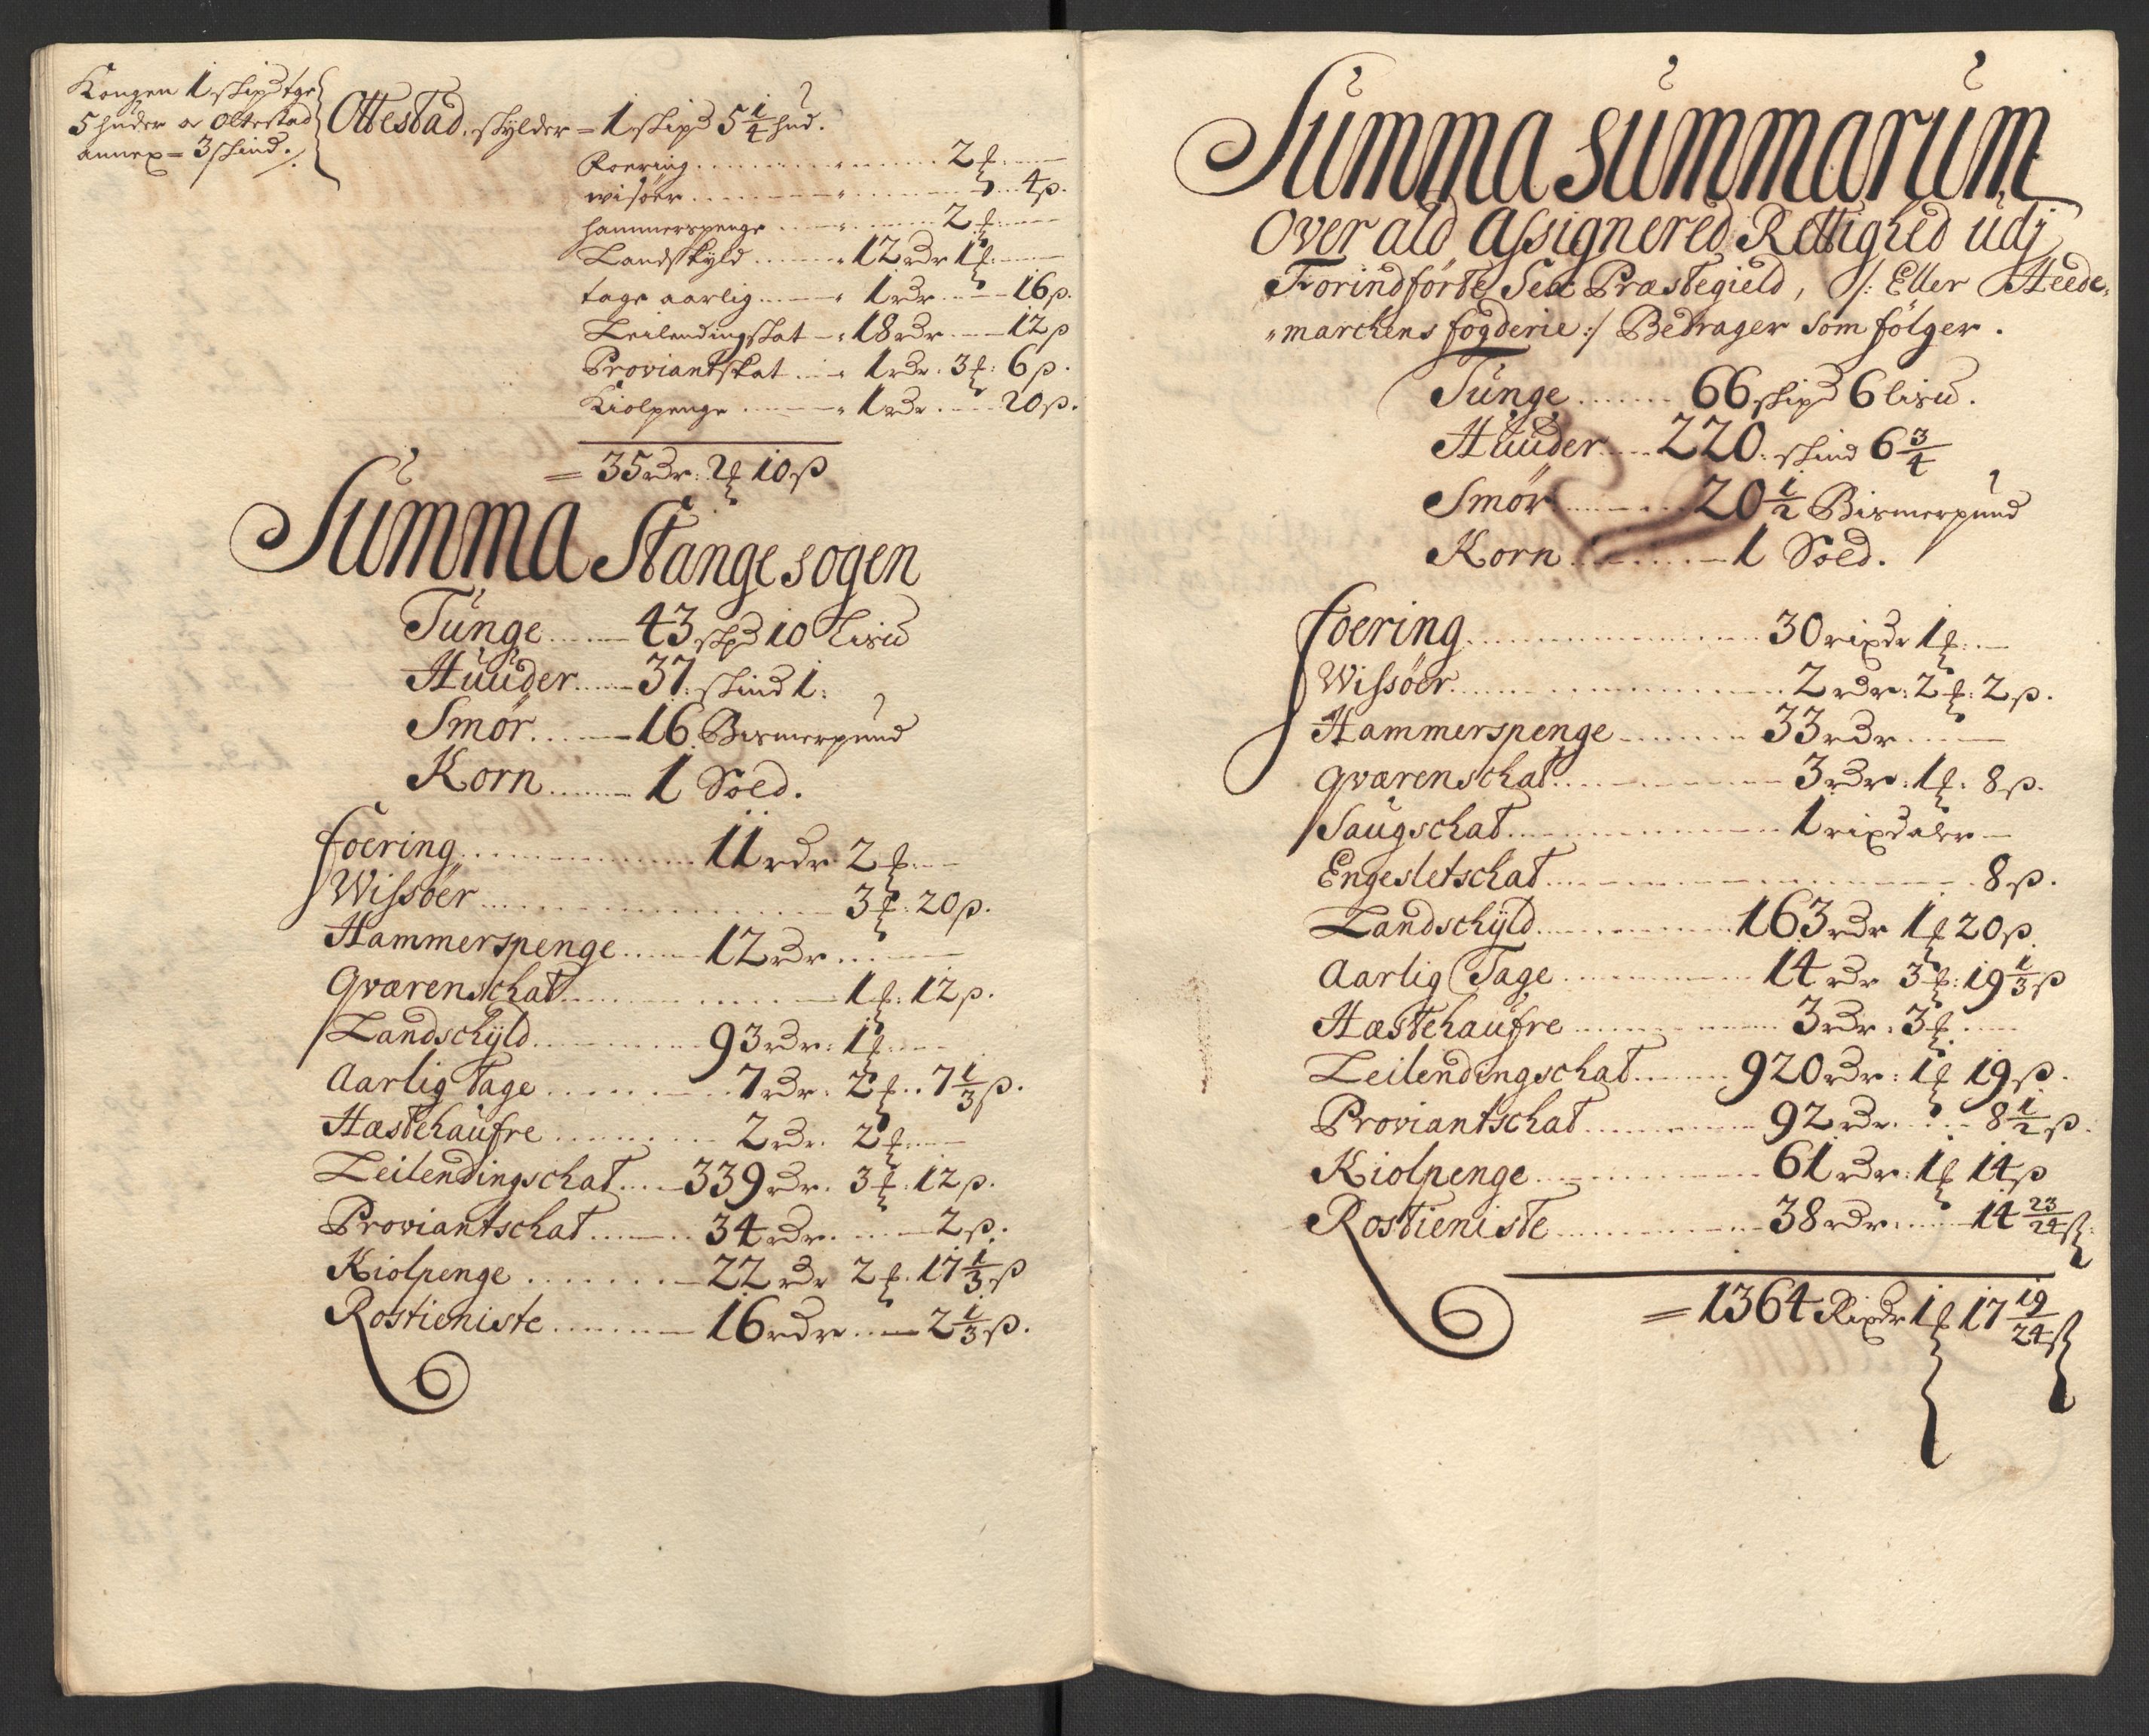 Kongen 1 skipd tge
5 huder a Ottestad
annex = 3 skind ./.
Ottestad, skylder = 1 skipd 5 1/4 hud.
Foering ........ 2 ƒ: —
wisöer ........ 4 ß.
hammerspenge ........ 2 ƒ: —
Landskyld ........ 12 rdr 1 ƒ: —
tage aarlig ........ 1 rdr ... 16 ß.
Leilendingskat — 18 rdr — 12 ß
Proviantskat ... 1 rdr. 3 ƒ: 6 ß.
Kiolpenge ........ 1 rdr. ... 20 ß.
= 35 rdr: 2 ƒ 10 ß
Summa Stange sogen
Tunge ........ 43 skpd 10 Lisu
Huuder ........ 37: skind 1:
Smör ........ 16 Bismerpund
Korn ........ 1 Sold.
foering ........ 11 rdr 2 ƒ: —
Wissöer ........ 3 ƒ: 20 ß.
Hammerspenge ........ 12 rdr ........
Qværenschat ........ 1 ƒ: 12 ß.
Landschyld ........ 93 rdr: 1 ƒ: —
Aarlig Tage ........ 7 rdr: 2 ƒ .. 7 1/3 ß.
Hæstehaufre ........ 2 rdr. 2 ƒ: —
Leilendingschat ... 339 rdr. 3 ƒ: 12 ß.
Proviantschat ........ 34 rdr. ... 2 ß.
Kiolpenge ........ 22 rdr 2 ƒ. 17 1/3 ß
Rostieniste ........ 16 rdr ... 2 1/3 ß.
Summa summarum
Over ald Assignered Rettighed udj
Forindförte Sex Præstegield, /: Eller Heede,
„marchens fogderie :/ Bedrager som fölger.
Tunge ........ 66 skipd 6 lisu.
Huuder ........ 220: skind 6 3/4
Smör ........ 20 1/2 Bismerpund
Korn ........ 1 Sold.
foering ........ 30 rixdr 1 ƒ: —
Wissöer ........ 2 rdr: 2 ƒ: 2 ß.
Hammerspenge ........ 33 rdr ........
Qværenschat ........ 3 rdr: 1 ƒ: 8 ß.
Saugschat ........ 1 rixdaler —
Engesletschat ........ 8 ß.
Landschyld ........ 163 rdr 1 ƒ 20 ß.
Aarlig Tage ........ 14 rdr 3 ƒ: 19 1/3 ß
Hæstehaufre ........ 3 rdr. 3 ƒ ....
Leilendingschat ........ 920 rdr: 1 ƒ 19 ß.
Proviantschat ........ 92 rdr. ... 8 1/2 ß.
Kiolpenge ........ 61 rdr: 1 ƒ 14 ß
Rostieniste ........ 38 rdr. ... 14 23/24 ß:
= 1364 Rixdr 1 ƒ 17 19/24 ß